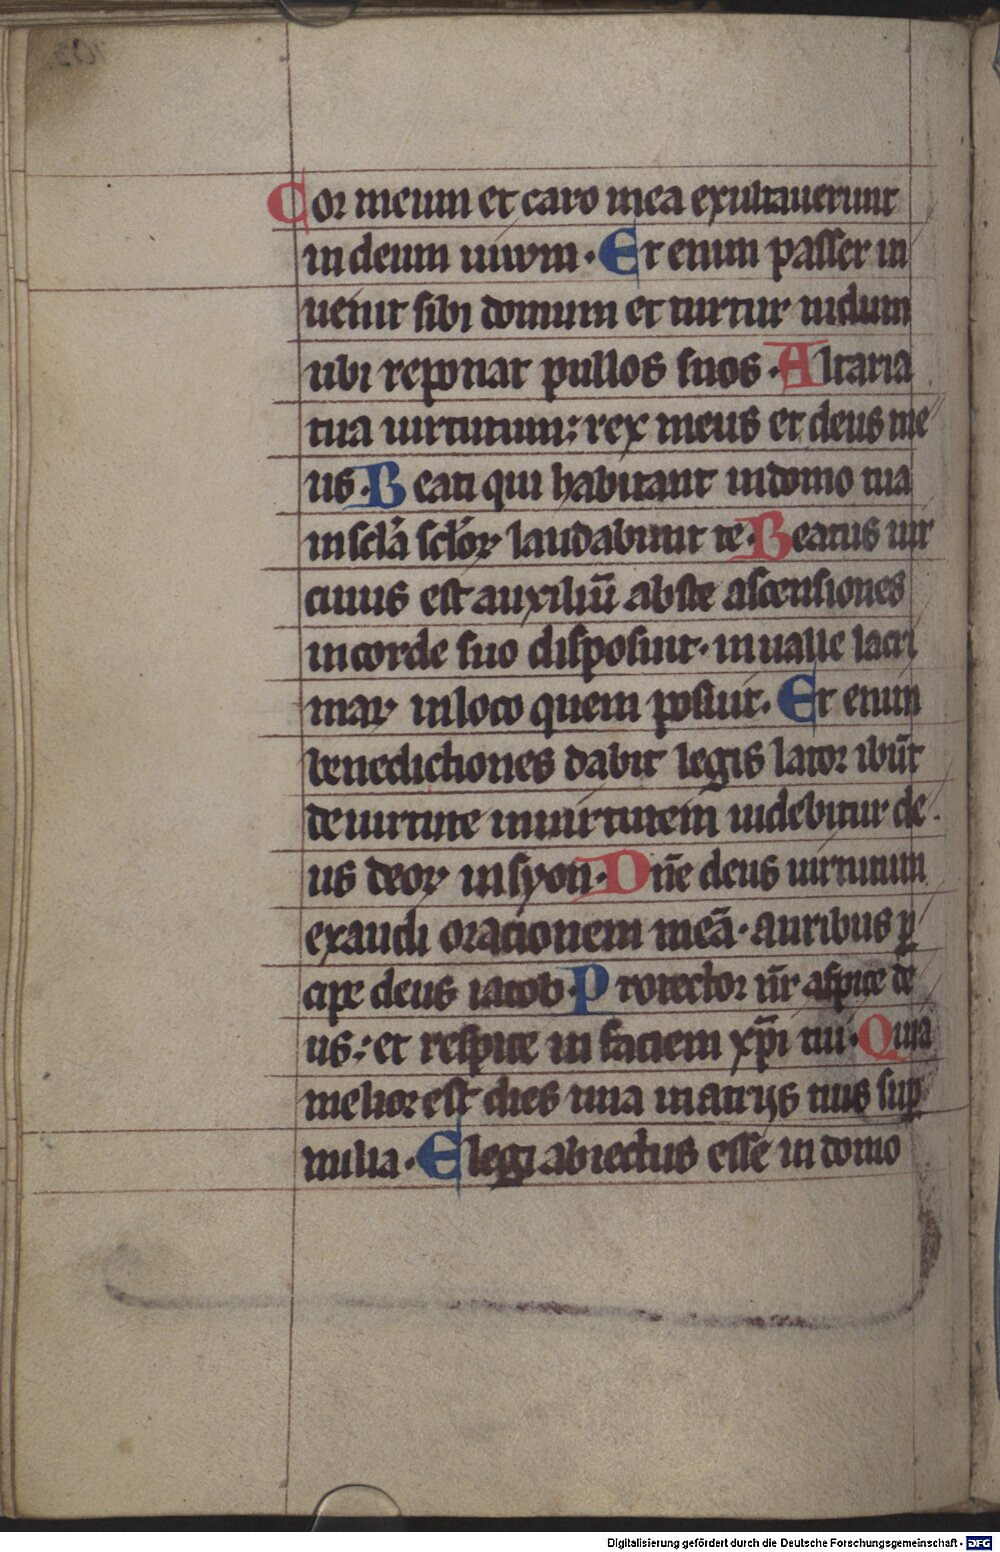 Cor meum et caro mea exultauerunt
in deum uiuum · Et enim passer in
uenit sibi domum et turtur nidum
ubi reponat pullos suos · Altaria
tua uirtutum: rex meus et deus me
us · Beati qui habitant in domo tua
in scl̄a scl̄oꝝ laudabunt te · Beatus uir
cuius est auxiliū abste ascensiones
in corde suo disposuit · in ualle lacri
maꝝ in loco quem posuit · Et enim
benedictiones dabit legis lator ibūt
de uirtute in uirtutem uidebitur de
us deoꝝ in syon · Dn̄e deus uirtutum
exaudi orationem meā · auribus ꝑ
cipe deus iacob · Protector nr̄ aspice de
us: et respice in faciem xp̄i tui · Quia
melior est dies una in atrijs tuis suꝑ
milia · Elegi abiectus esse in domo
Digitalisierung gefördert durch die Deutsche Forschungsgemeinschaft - DFG